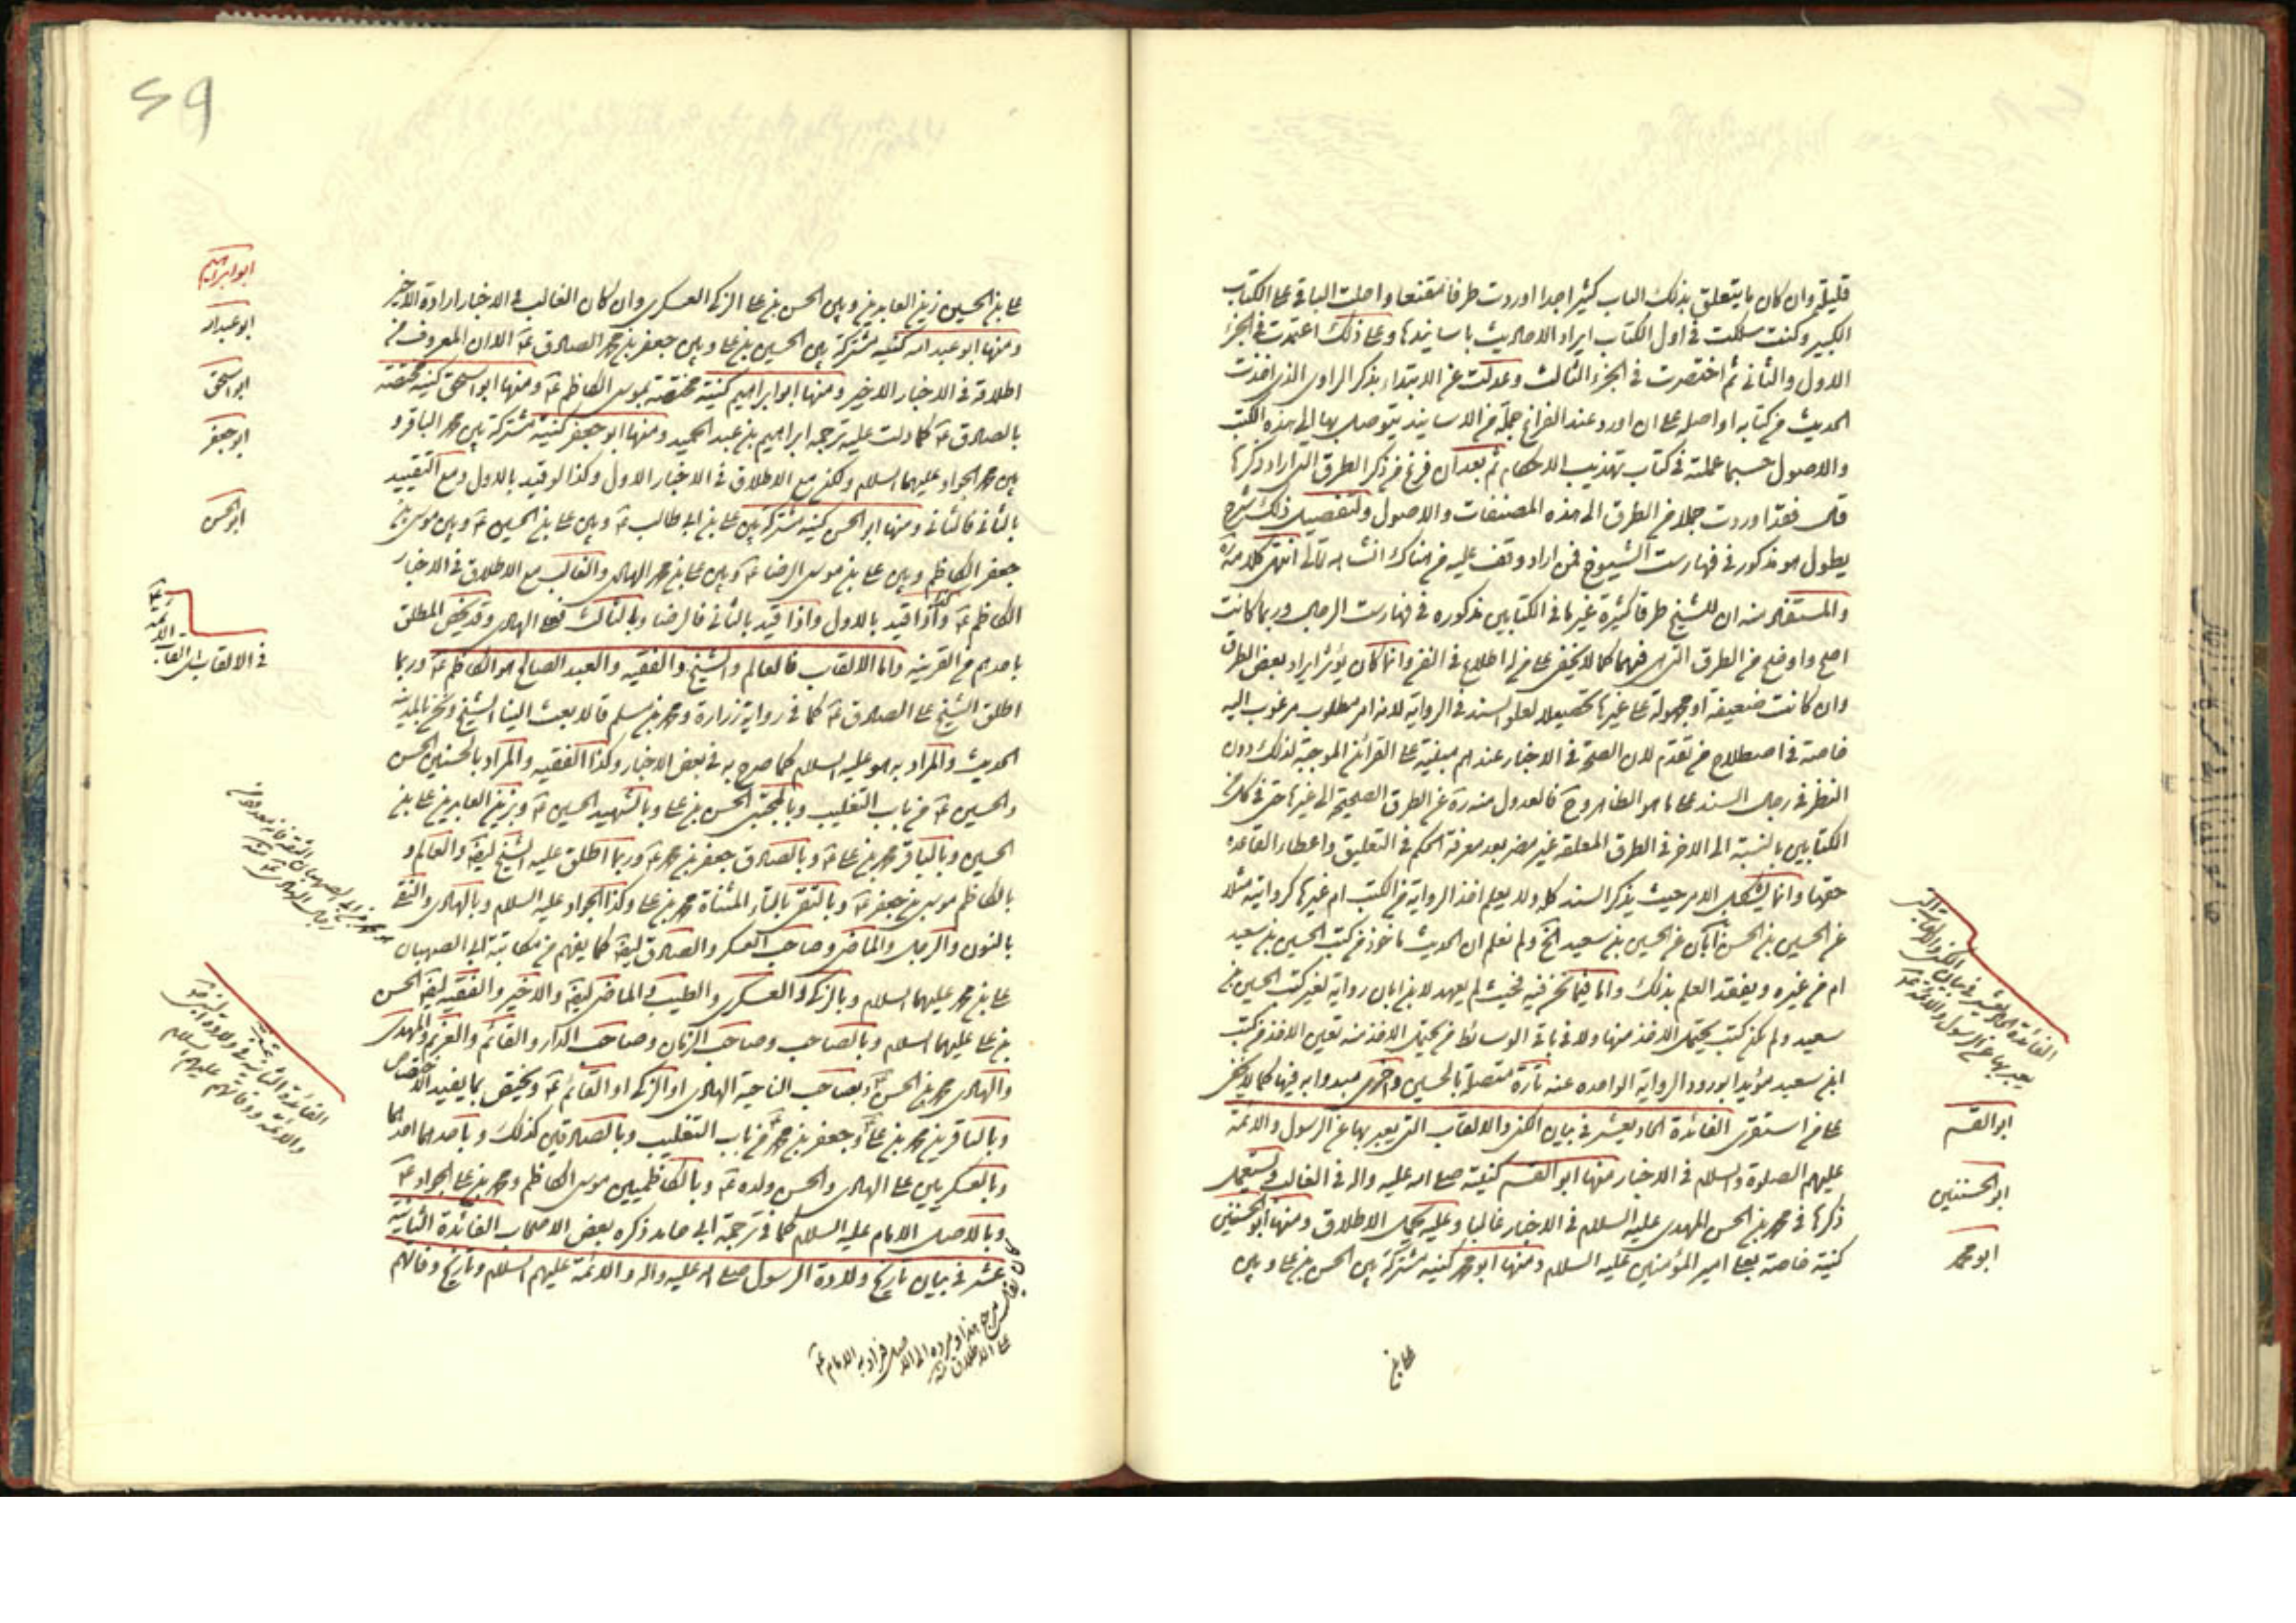 قليلة وان كان ما يتعلق بذلك الباب كثيرا جدا اوردت طرفا مقنعا واحلت الباقي على الكتاب
الكبير وكنت سلكت في اول الكتاب ايراد الاحاديث باسانيدها وعلى ذلك اعتمدت في الجزء
الاول والثاني ثم اختصرت في الجزء الثالث وعدلت عن الابتداء بذكر الراوي الذي اخذت
الحديث من كتابه او اصله على ان اورد عند الفراغ جملة من الاسانيد يتوصل بها الى هذه الكتب
والاصول حسبما عملته في كتاب تهذيب الاحكام ثم بعد ان فرغ من ذكر الطرق التي اراد ذكرها
قال فقد اوردت جملا من الطرق الى هذه المصنفات والاصول ولتفصيل ذلك شرح
يطول هو مذكور في فهارست الشيوخ فمن اراد وقف عليه من هناك انشاء الله تعالى انتهى كلامه
والمستفاد منه ان للشيخ طرقا كثيرة غير ما في الكتابين مذكوره في فهارست الرجال وربما كانت
اصح واوضح من الطرق التي فيهما كما لا يخفى على من له اطلاع في الفن وانما كان يؤثر ايراد بعض الطرق
وان كانت ضعيفة او مجهولة على غيرها تحصيلا لعلو السند في الرواية لانه امر مطلوب مرغوب اليه
خاصة في اصطلاح من تقدم لان الصحة في الاخبار عندهم مبنية على القرائن الموجبة لذلك دون
النظر في رجال السند على ما هو الظاهر وح فالعدول منه ره عن الطرق الصحيحة الى غيرها حتى في كل من
الكتابين بالنسبة الى الاخر في الطرق المعلقة غير مضر بعد معرفة الحكم في التعليق واعطاء القاعدة
حقها وانما يشكل الامر حيث يذكر السند كله ولا يعلم اخذ الرواية من الكتب ام غيرها كروايته مثلا
عن الحسين بن الحسن بن ابان عن الحسين بن سعيد الخ ولم نعلم ان الحديث ماخوذ من كتب الحسين بن سعيد
ام من غيره ويفقد العلم بذلك واما فيما نحن فيه فحيث لم يعهد لابن ابان رواية لغير كتب الحسين بن
سعيد ولم يكن كتب يحتمل الاخذ منها ولا في باقي الوسائط من يحتمل الاخذ منه تعين الاخذ من كتب
ابن سعيد مؤيدا بورود الرواية الواحده عنه تارة متصلة بالحسين واخرى مبدوا به فيها كما لا يخفى
على من استقرى الفائدة الحاديعشر في بيان الكنى والالقاب التي يعبر بها عن الرسول والائمة
عليهم الصلوة والسلام في الاخبار منها ابو القسم كنيته صلى الله عليه واله في الغالب ويستعمل
ذكرها في محمد بن الحسن المهدي عليه السلام في الاخبار غالبا وعليه يحمل الاطلاق ومنها ابو الحسنين
كنية خاصة بعلي امير المؤمنين عليه السلام ومنها ابو محمد كنية مشتركة بين الحسن بن علي وبين
علي بن
الفائدة الحاديعشر في بيان الكنى والالقاب التي
يعبر بها عن الرسول والائمة
ابو القسم
ابو الحسنين
ابو محمد
59
علي بن الحسين زين العابدين وبين الحسن بن علي الزكي العسكري وان كان الغالب في الاخبار ارادة الاخير
ومنها ابو عبد الله كنية مشتركة بين الحسين بن علي وبين جعفر بن محمد الصادق ع الا ان المعروف من
اطلاقه في الاخبار الاخير ومنها ابو ابراهيم كنية مختصة بموسى الكاظم ع ومنها ابو اسحق كنية مختصة
بالصادق ع كما دلت عليه ترجمة ابراهيم بن عبد الحميد ومنها ابو جعفر كنية مشتركة بين محمد الباقر و
بين محمد الجواد عليهما السلام ولكن مع الاطلاق في الاخبار الاول وكذا لو قيد بالاول ومع التقييد
بالثاني فالثاني ومنها ابو الحسن كنية مشتركة بين علي بن ابي طالب ع وبين علي بن الحسين ع وبين موسى بن
جعفر الكاظم وبين علي بن موسى الرضا ع وبين علي بن محمد الهادي والغالب مع الاطلاق في الاخبار
الكاظم ع وكذا اذا قيد بالاول واذا قيد بالثاني فالرضا وبالثالث فعلي الهادي وقد يخص المطلق
باحدهم مع القرينة واما الالقاب فالعالم والشيخ والفقيه والعبد الصالح هو الكاظم ع وربما
اطلق الشيخ على الصادق ع كما في رواية زرارة ومحمد بن مسلم قالا بعث الينا الشيخ ونحن بالمدينة
الحديث والمراد به هو عليه السلام كما صرح به في بعض الاخبار وكذا الفقيه والمراد بالحسنين الحسن
والحسين ع من باب التغليب وبالمجتبى الحسن بن علي وبالشهيد الحسين ع وبزين العابدين علي بن
الحسين وبالباقر محمد بن علي ع وبالصادق جعفر بن محمد ع وربما اطلق عليه الشيخ ايضا والعالم و
بالكاظم موسى بن جعفر ع وبالتقي بالتاء المثناة محمد بن علي وكذا الجواد عليه السلام وبالهادي والنقي
بالنون والرجل والماضي وصاحب العسكر والصادق ايضا كما يفهم من مكاتبة ابي الصهبان
علي بن محمد عليهما السلام وبالزكي والعسكري والطيب والماضي ايضا والاخير والفقيه ايضا الحسن
بن علي عليهما السلام وبالصاحب وصاحب الزمان وصاحب الدار والقائم والغريم والمهدي
والهادي محمد بن الحسن ع وبصاحب الناحية الهادي او الزكي او القائم ع ويختص بما يفيد الاختصاص
وبالباقرين محمد بن علي وجعفر بن محمد من باب التغليب وبالصادقين كذلك وباحدهما احدهما
وبالعسكريين علي الهادي والحسن ولده ع وبالكاظميين موسى الكاظم ومحمد بن علي الجواد ع
وبالاصل الامام عليه السلام كما في ترجمة ابي حامد ذكره بعض الاصحاب الفائدة الثانية
عشر في بيان تاريخ ولادة الرسول صلى الله عليه واله والائمة عليهم السلام وتاريخ وفاتهم
ابو ابراهيم
ابو عبد الله
ابو اسحق
ابو جعفر
ابو الحسن
في الالقاب
الفائدة الثانية عشر في ولادة النبي
والائمة ووفاتهم عليهم السلام